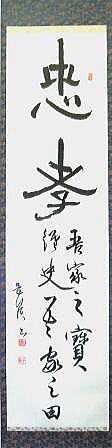 忠孝
吾家之寶
經史吾家之田